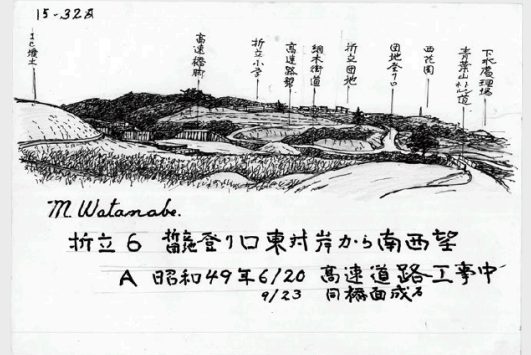 15-32A
高速橋脚
折立小学
高速路盤
細木街道
折立団地
団地登り口
西花園
青葉山
下水処理場
M. Watanabe.
折立6 登り口東対岸から南西望
A 昭和49年6/20 高速道路工事中
9/23 同橋面成る